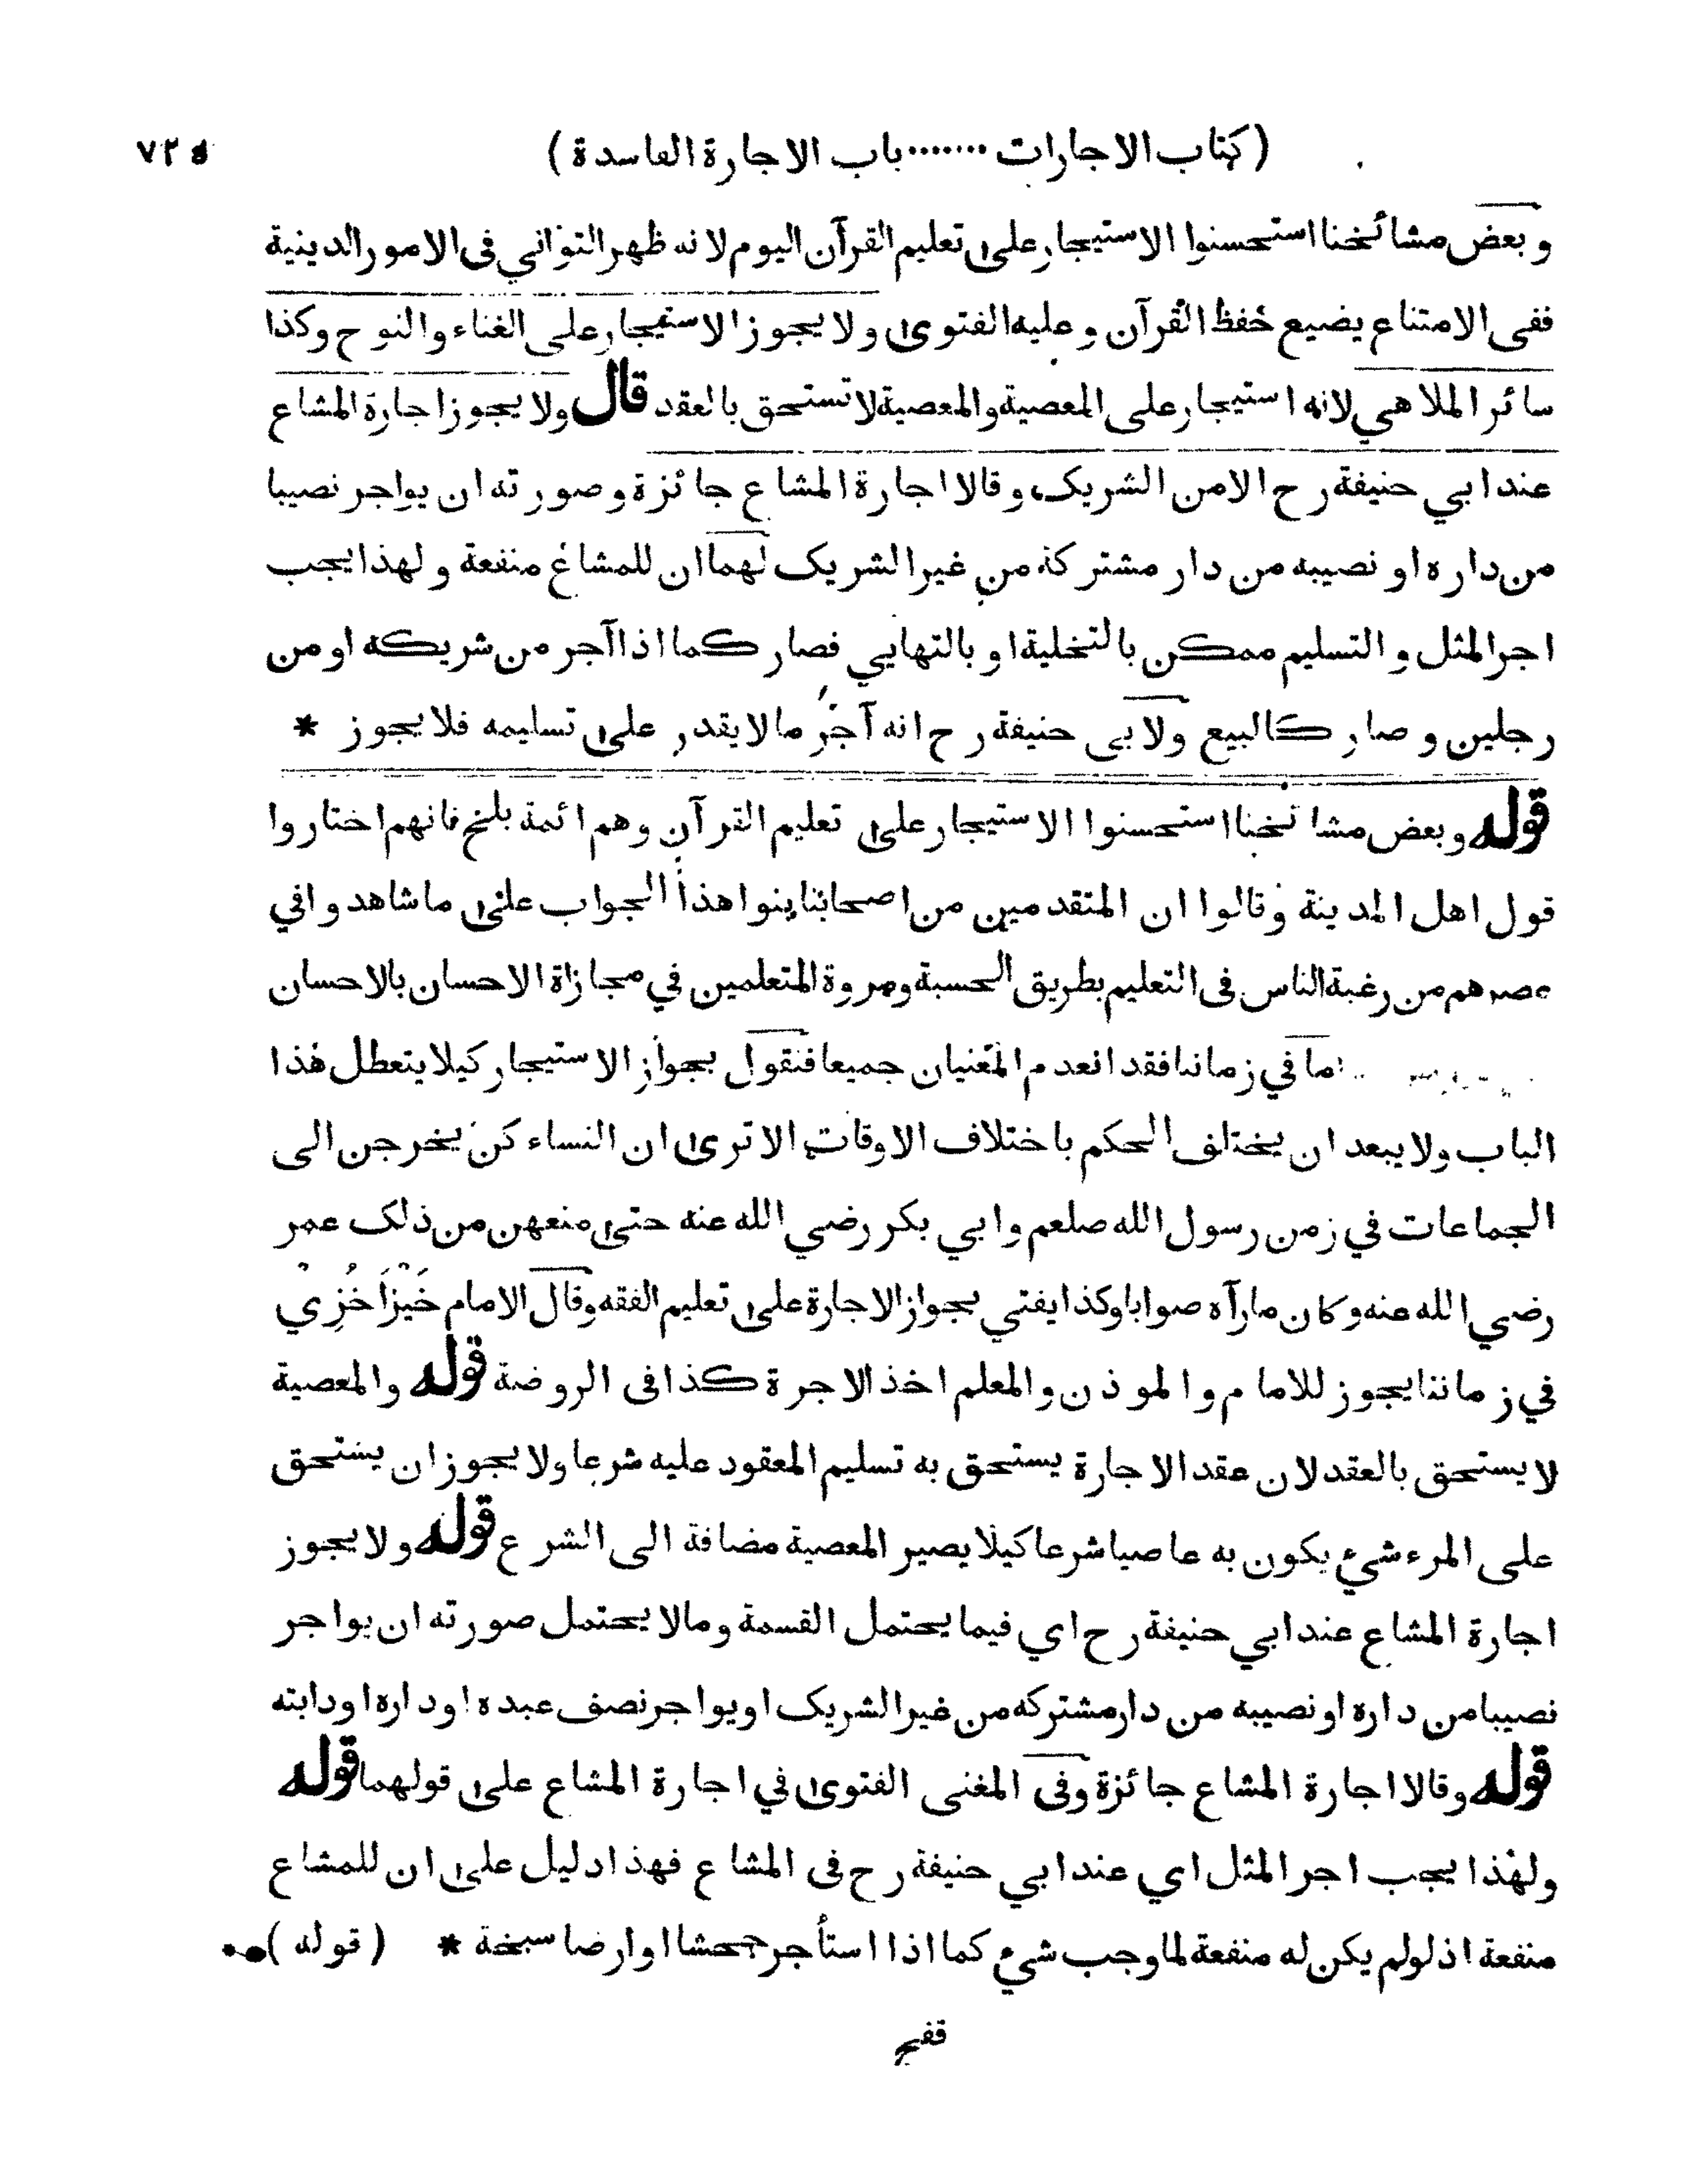 (كتاب الاجارات ······· باب الاجارة الفاسدة) ٧٢٥
وبعض مشائخنا استحسنوا الاستيجار على تعليم القرآن اليوم لانه ظهر التواني فى الامور الدينية
ففى الامتناع يضيع حفظ القرآن وعليه الفتوى ولا يجوز الاستيجار على الغناء والنوح وكذا
سائر الملاهي لانه استيجار على المعصية والمعصية لا تستحق بالعقد قال ولا يجوز اجارة المشاع
عند ابي حنيفة رح الا من الشريك وقالا اجارة المشاع جائزة وصورته ان يواجر نصيبا
من داره او نصيبه من دار مشتركة من غير الشريك لهما ان للمشاع منفعة ولهذا يجب
اجر المثل والتسليم ممكن بالتخلية او بالتهايي فصار كما اذا آجر من شريكه او من
رجلين وصار كالبيع ولابي حنيفة رح انه آجر ما لا يقدر على تسليمه فلا يجوز *
قوله وبعض مشائخنا استحسنوا الاستيجار على تعليم القرآن وهم ائمة بلخ فانهم اختاروا
قول اهل المدينة وقالوا ان المتقدمين من اصحابنا بنوا هذا الجواب على ما شاهدوا في
عصرهم من رغبة الناس فى التعليم بطريق الحسبة ومروة المتعلمين في مجازاة الاحسان بالاحسان
اما في زماننا فقد انعدم المعنيان جميعا فنقول بجواز الاستيجار كيلا يتعطل هذا
الباب ولا يبعد ان يختلف الحكم باختلاف الاوقات الا ترى ان النساء كن يخرجن الى
الجماعات في زمن رسول الله صلعم وابي بكر رضي الله عنه حتى منعهن من ذلك عمر
رضي الله عنه وكان ما رآه صوابا وكذا يفتي بجواز الاجارة على تعليم الفقه وقال الامام خَيْزَاخُزِي
في زماننا يجوز للامام والموذن والمعلم اخذ الاجرة كذا فى الروضة قوله والمعصية
لا يستحق بالعقد لان عقد الاجارة يستحق به تسليم المعقود عليه شرعا ولا يجوز ان يستحق
على المرء شيء يكون به عاصيا شرعا كيلا يصير المعصية مضافة الى الشرع قوله ولا يجوز
اجارة المشاع عند ابي حنيفة رح اي فيما يحتمل القسمة وما لا يحتمل صورته ان يواجر
نصيبا من داره او نصيبه من دار مشتركه من غير الشريك او يواجر نصف عبده او داره او دابته
قوله وقالا اجارة المشاع جائزة وفى المغنى الفتوى في اجارة المشاع على قولهما قوله
ولهذا يجب اجر المثل اي عند ابي حنيفة رح فى المشاع فهذا دليل على ان للمشاع
منفعة اذ لو لم يكن له منفعة لما وجب شيء كما اذا استأجر جحشا او ارضا سبخة * (قوله)